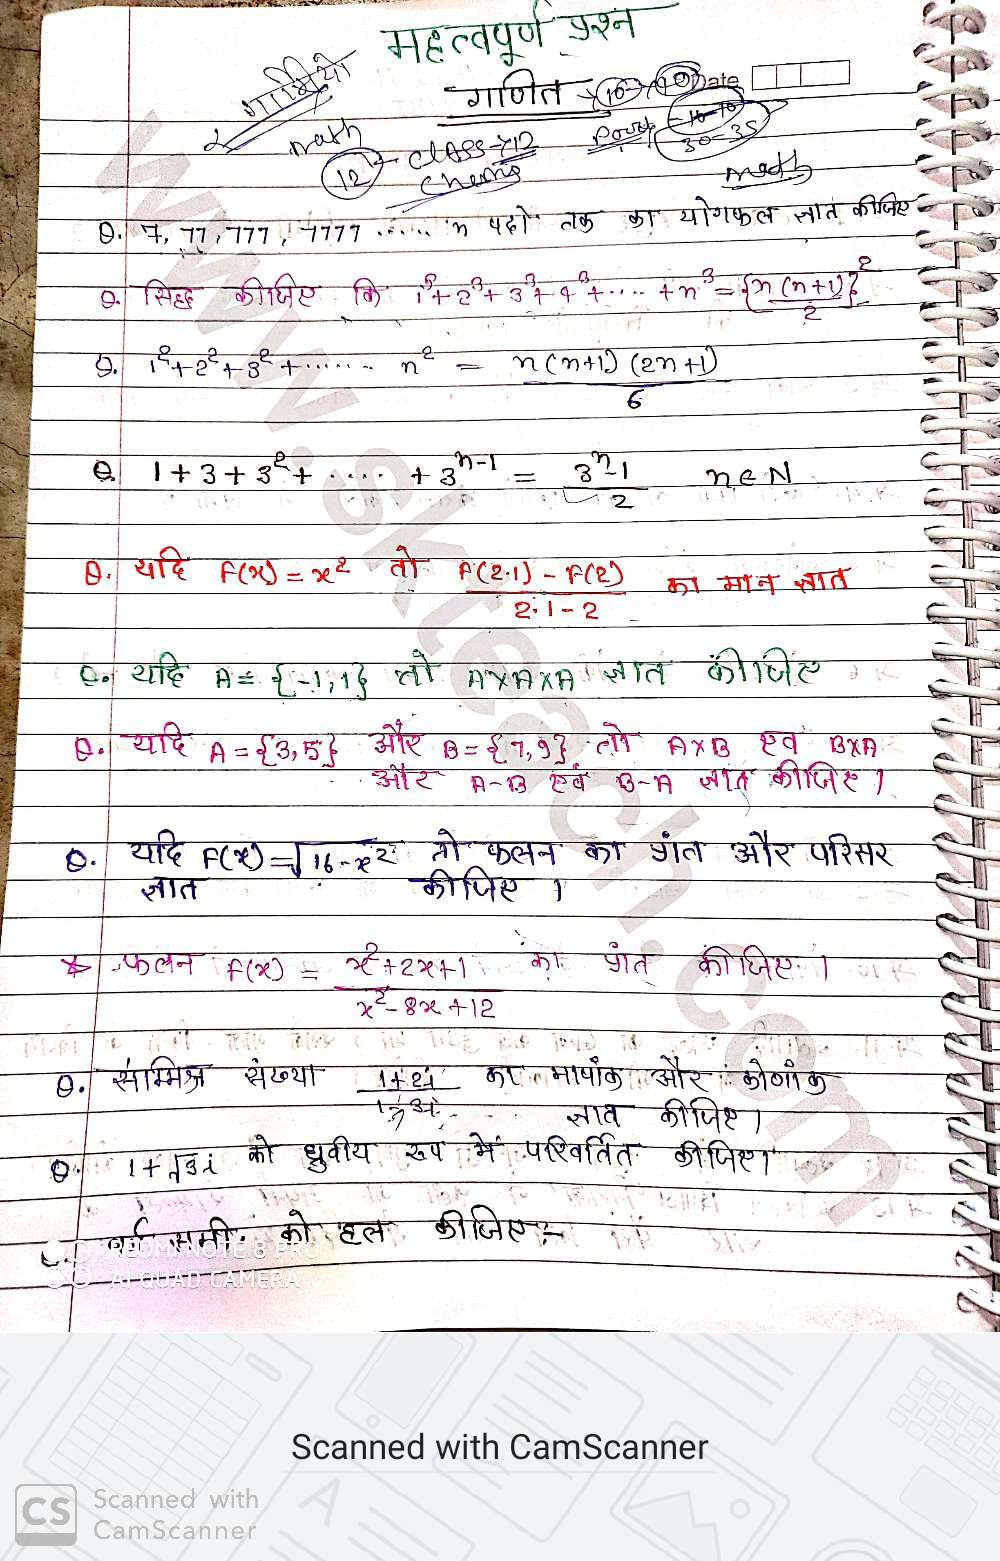 महत्वपूर्ण प्रश्न
गणित
Date
math
12 class → 12
30-35
math
Q. 7, 77, 777, 7777 ...... n पदो तक का योगफल ज्ञात कीजिए
Q. सिद्ध कीजिए कि 1³+2³+3³+4³+.... +n³ = {n(n+1)/2}²
Q. 1²+2²+3²+....... n² = n(n+1)(2n+1)/6
Q. 1+3+3²+ ..... +3ⁿ⁻¹ = 3ⁿ-1/2 n∈N
Q. यदि F(x) = x² तो F(2.1) - F(2)/2.1-2 का मान ज्ञात
Q. यदि A = {-1,1} तो A×A×A ज्ञात कीजिए
Q. यदि A = {3,5} और B = {7,9} तो A×B एवं B×A
और A-B एवं B-A ज्ञात कीजिए।
Q. यदि F(x) = √16-x² तो फलन का प्रांत और परिसर
ज्ञात कीजिए।
फलन F(x) = x²+2x+1/x²-8x+12 का प्रांत कीजिए।
Q. सम्मिश्र संख्या 1+2i/1-3i का मापांक और कोणांक
ज्ञात कीजिए।
Q. 1+√3i को ध्रुवीय रूप में परिवर्तित कीजिए।
वर्ग समी. को हल कीजिए:-
REDMI NOTE 8 PRO
AI QUAD CAMERA
www.skteach.com
Scanned with CamScanner
CS
Scanned with
CamScanner